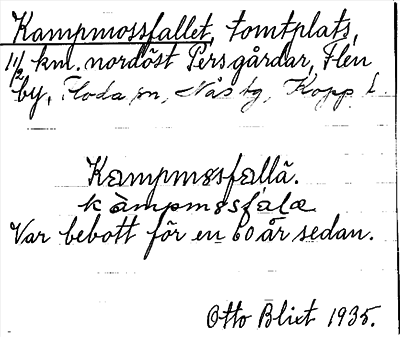 Kampmossfallet, tomtplats,
1 1/2 km. nordöst Persgårdar, Flen
by, Floda sn, Nås tg, Kopp. l.
Kampmossfallä.
kàmpmosfála
Var bebott för en 60 år sedan.
Otto Blixt 1935.